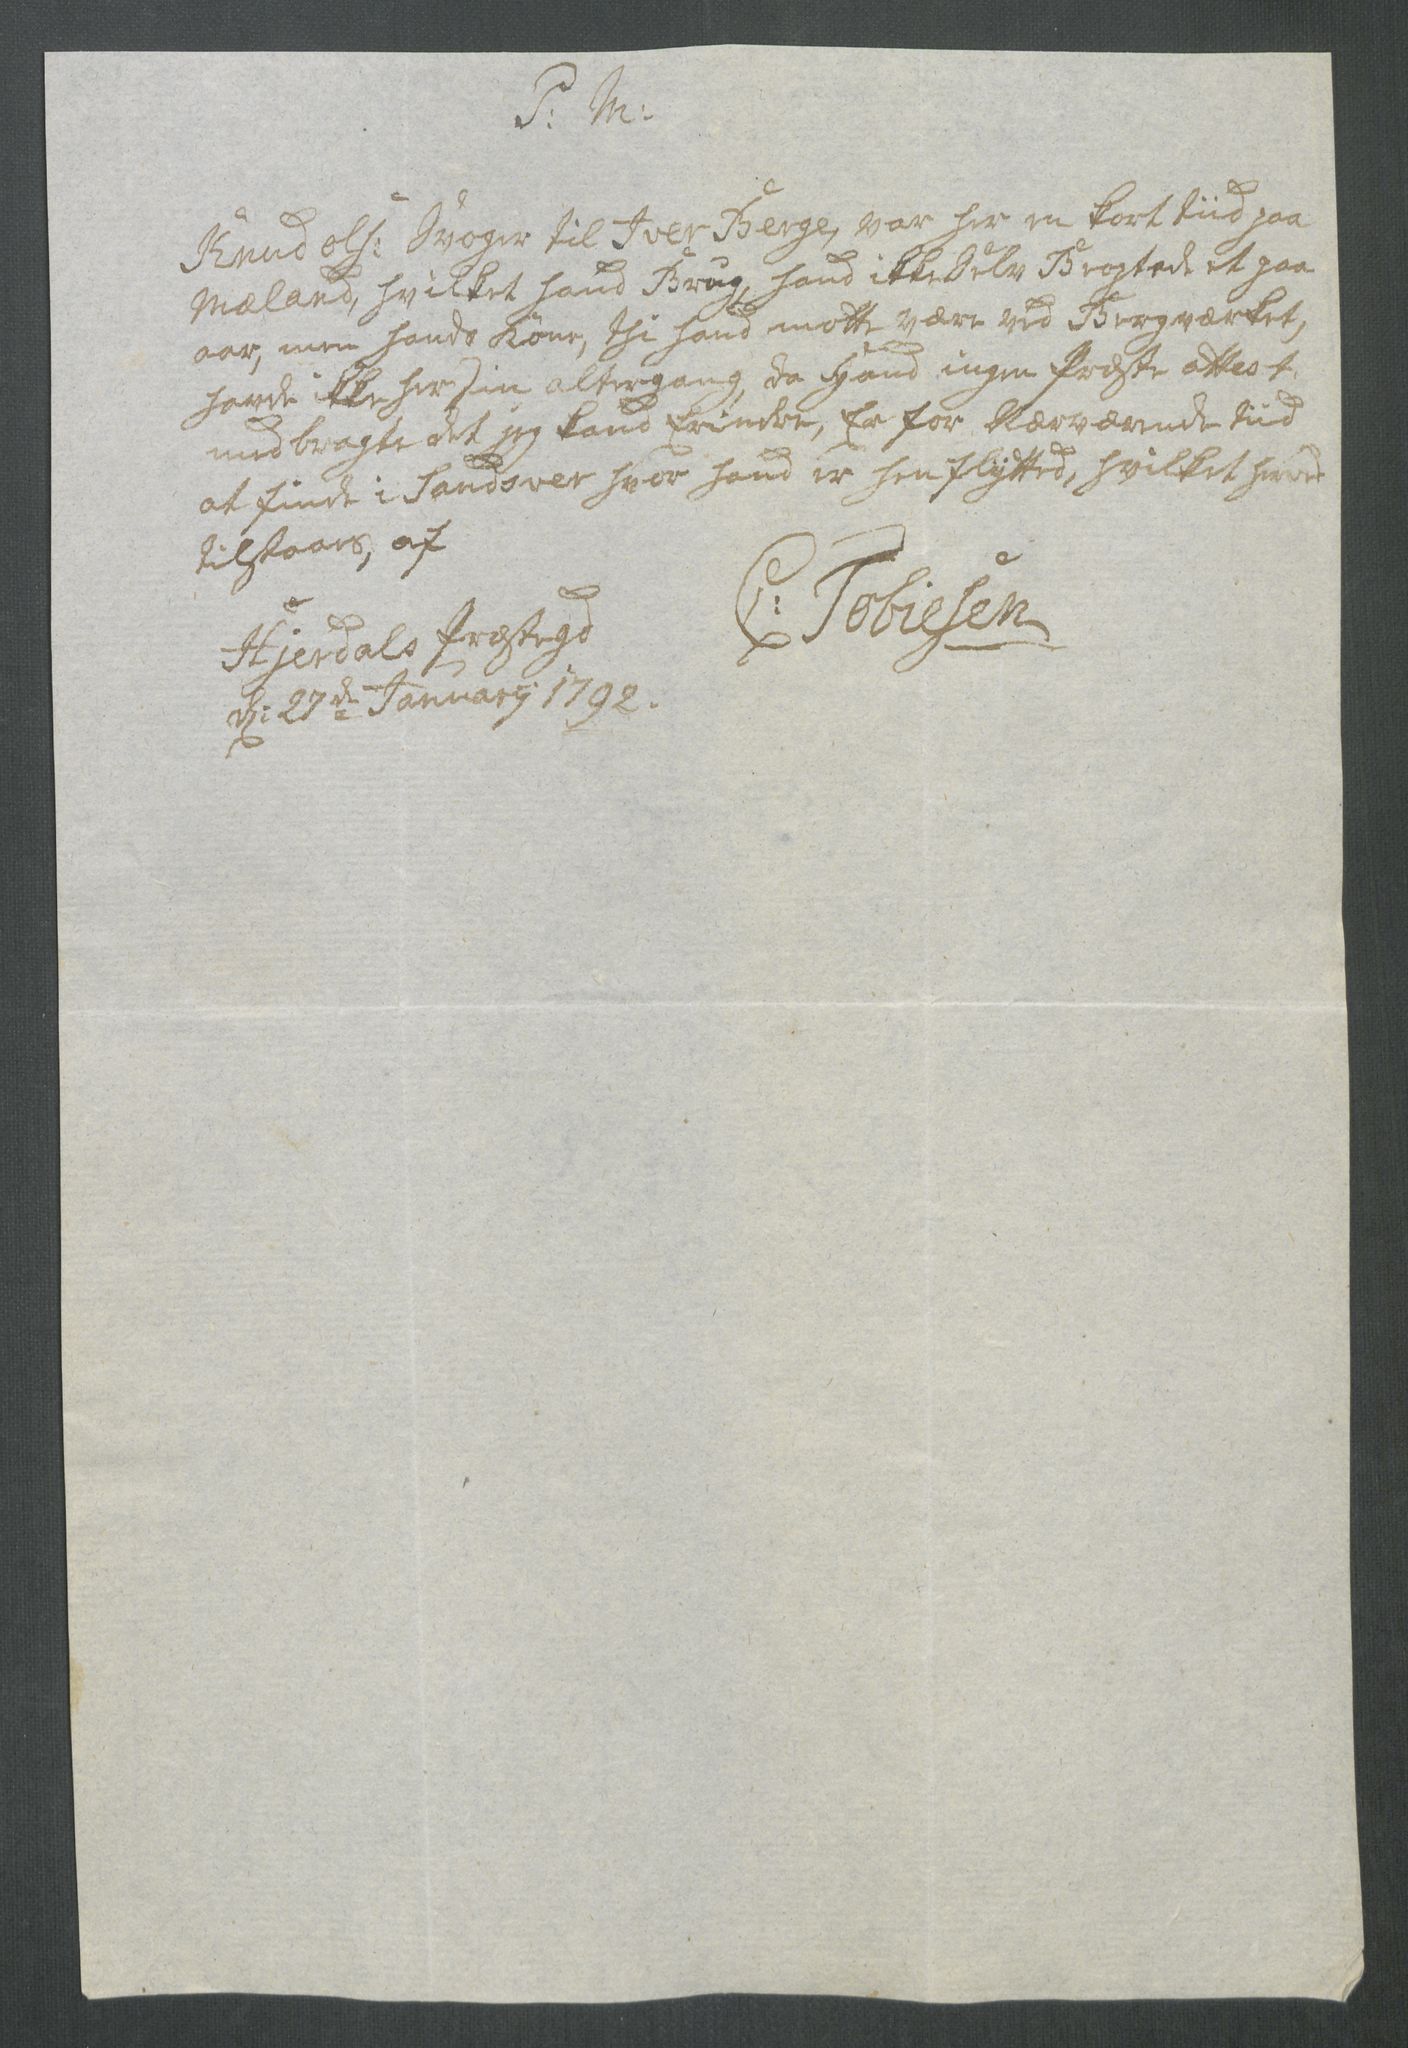 P: M:
Knud Ols: Svoger til Iver Berge, var her en kort tiid paa
Mæland, hvilket hand Brug, hand ikke Selv Bygtede et paa
aar, men hands Kone, thi hand motte være ved Bergværket,
havde ikke her sin altergang, da Hand ingen Præste attest
medbragte det jeg kand Erindre, Er for Nærværende tiid
at finde i Sandsver hvor hand er henflytted, hvilket herved
tilstaaes, af
C: Tobiesen
Hjerdals Præstegd
d: 27de January 1792.